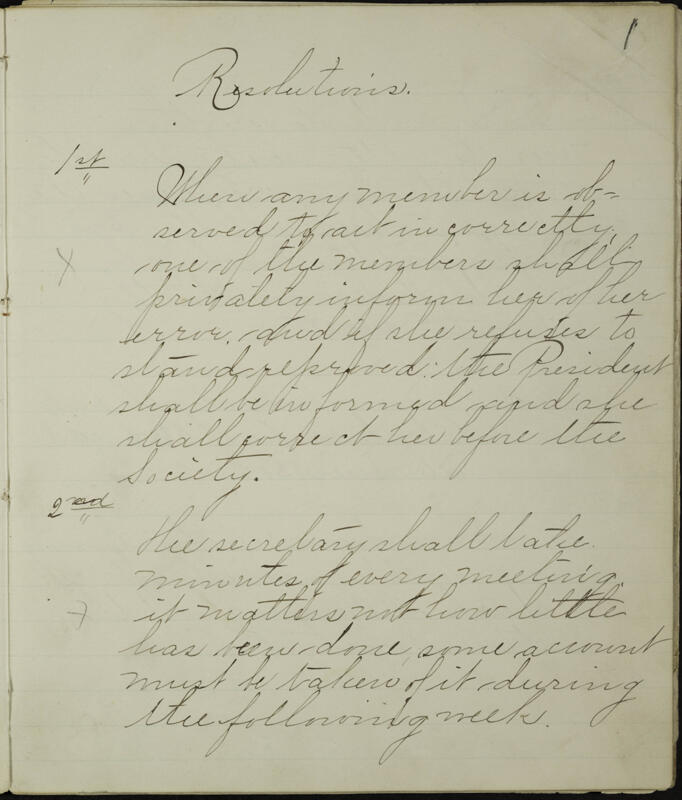 1
Resolutions.
1st
When any member is ob=
served to act incorrectly,
one of the members shall
privately inform her of her
error. And if she refuses to
stand reproved: the President
shall be informed and she
shall correct her before the
Society.
2nd
The secretary shall take
minutes of every meeting,
it matters not how little
has been done, some account
must be taken of it during
the following week.